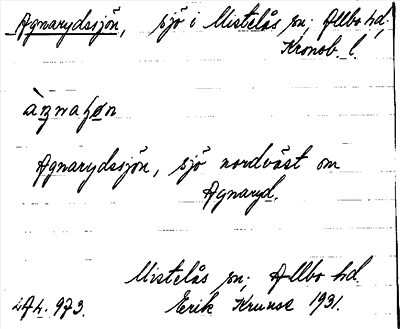 Agnarydssjön, sjö i Mistelås sn; Allbo hd.
Kronob. l.
Agnarydssjön, sjö nordväst om
Agnaryd.
Mistelås sn; Allbo hd.
Erik Kruuse 1931.